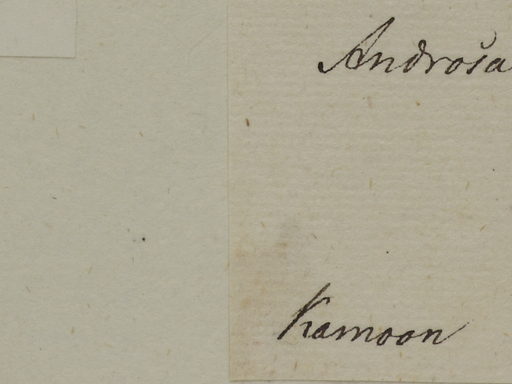 Androsa
Kamoon